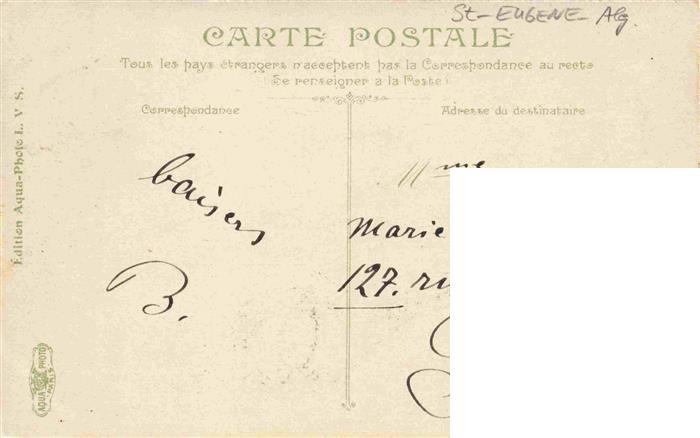 St-EUGENE-Alg.
CARTE POSTALE
Tous les pays étrangers n'acceptent pas la Correspondance au recto
(Se renseigner à la Poste)
Correspondance
Adresse du destinataire
baisers
B.
Mme
Marie
127. ru
Édition Aqua-Photo L. V S.
AQUA PHOTO
PARIS